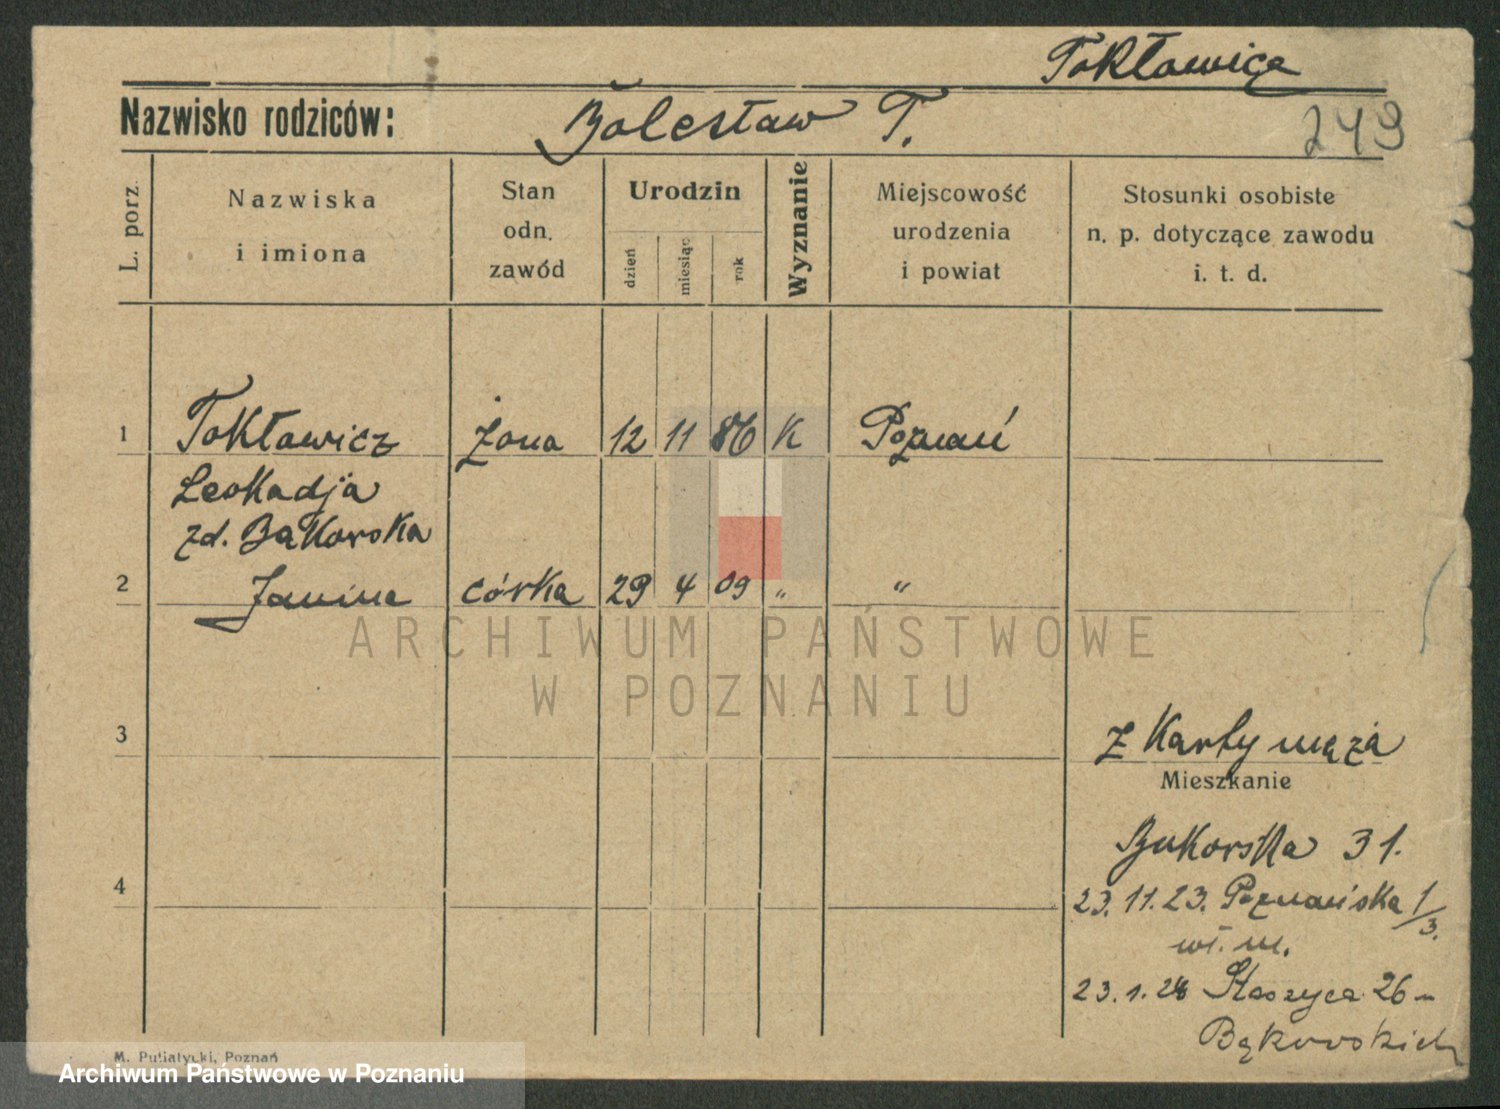 Tokłowicz
Nazwisko rodziców: Bolesław T.
249
L. porz.
Nazwiska
i imiona
Stan
odn.
zawód
Urodzin
dzień
miesiąc
rok
Wyznanie
Miejscowość
urodzenia
i powiat
Stosunki osobiste
n. p. dotyczące zawodu
i. t. d.
1 Tokłowicz żona 12 11 86 K Poznań
Leokadja
zd. Bąkowska
2 Janina córka 29 4 09 " "
ARCHIWUM PAŃSTWOWE
W POZNANIU
3
z Karty męża
Mieszkanie
Bukowska 31.
4
23.11.23. Poznańska 1/3.
wł. m.
23.1.28 Staszyca 26
Bąkowskich
M. Putiatycki, Poznań
Archiwum Państwowe w Poznaniu